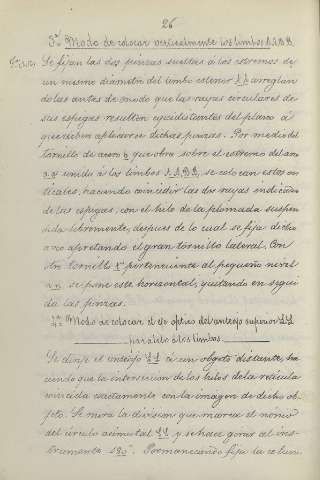 26
3ª Modo de colocar verticalmente los limbos A, A, B, B.
Se fijan las dos pinzas sueltas á los estremos de
un mismo diámetro del limbo esterior arreglan
dolas antes de modo que las rayas circulares de
sus espigas resulten equidistantes del plano á
que deben aplicarse dichas pinzas. Por medio del
tornillo de acero que obra sobre el estremo del
unido á los limbos A, A, B, B, se colocan estos ver
ticales, haciendo coincidir las dos rayas indicadas
de las espigas, con el hilo de la plomada suspen
dida libremente, despues de lo cual se fija dicho
arco apretando el gran tornillo lateral. Con
otro tornillo perteneciente al pequeño nivel
n, n, se pone este horizontal, quitando en segui
da las pinzas.
Modo de colocar el eje óptico del anteojo superior L L
paralelo á los limbos.
Se dirije el anteojo L L á un objeto distante, ha
ciendo que la interseccion de los hilos de la retícula
coincida exactamente con la imagen de dicho ob
jeto. Se mira la division que marca el nonio
del círculo acimutal y se hace girar el ins
trumento 180°. Permaneciendo fija la colum